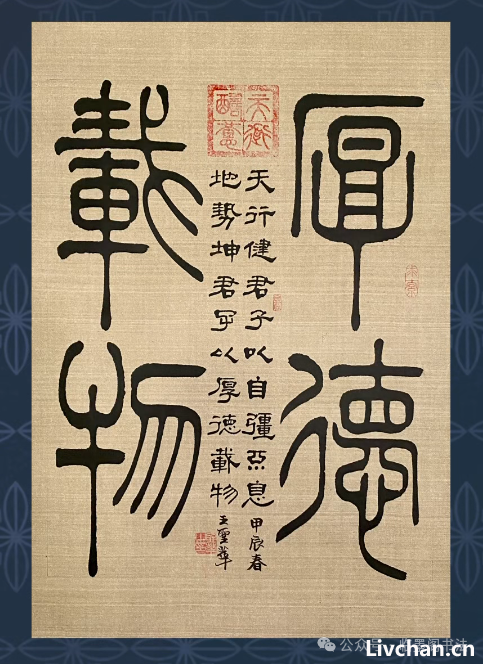 厚德
載物
天行健君子以自彊不息
甲辰春
地勢坤君子以厚德載物
王
公众号
Livchan.cn